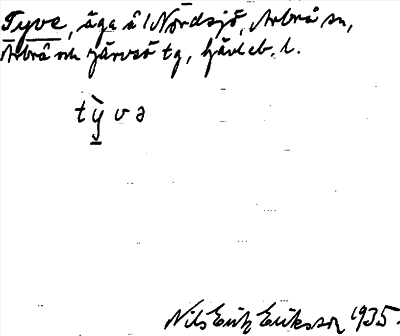 Tyve, äga å 1 Nordsjö, Arbrå sn,
Arbrå och Järvsö tg, Gävleb. l.
tỳvə
Nils Erik Eriksson 1935.